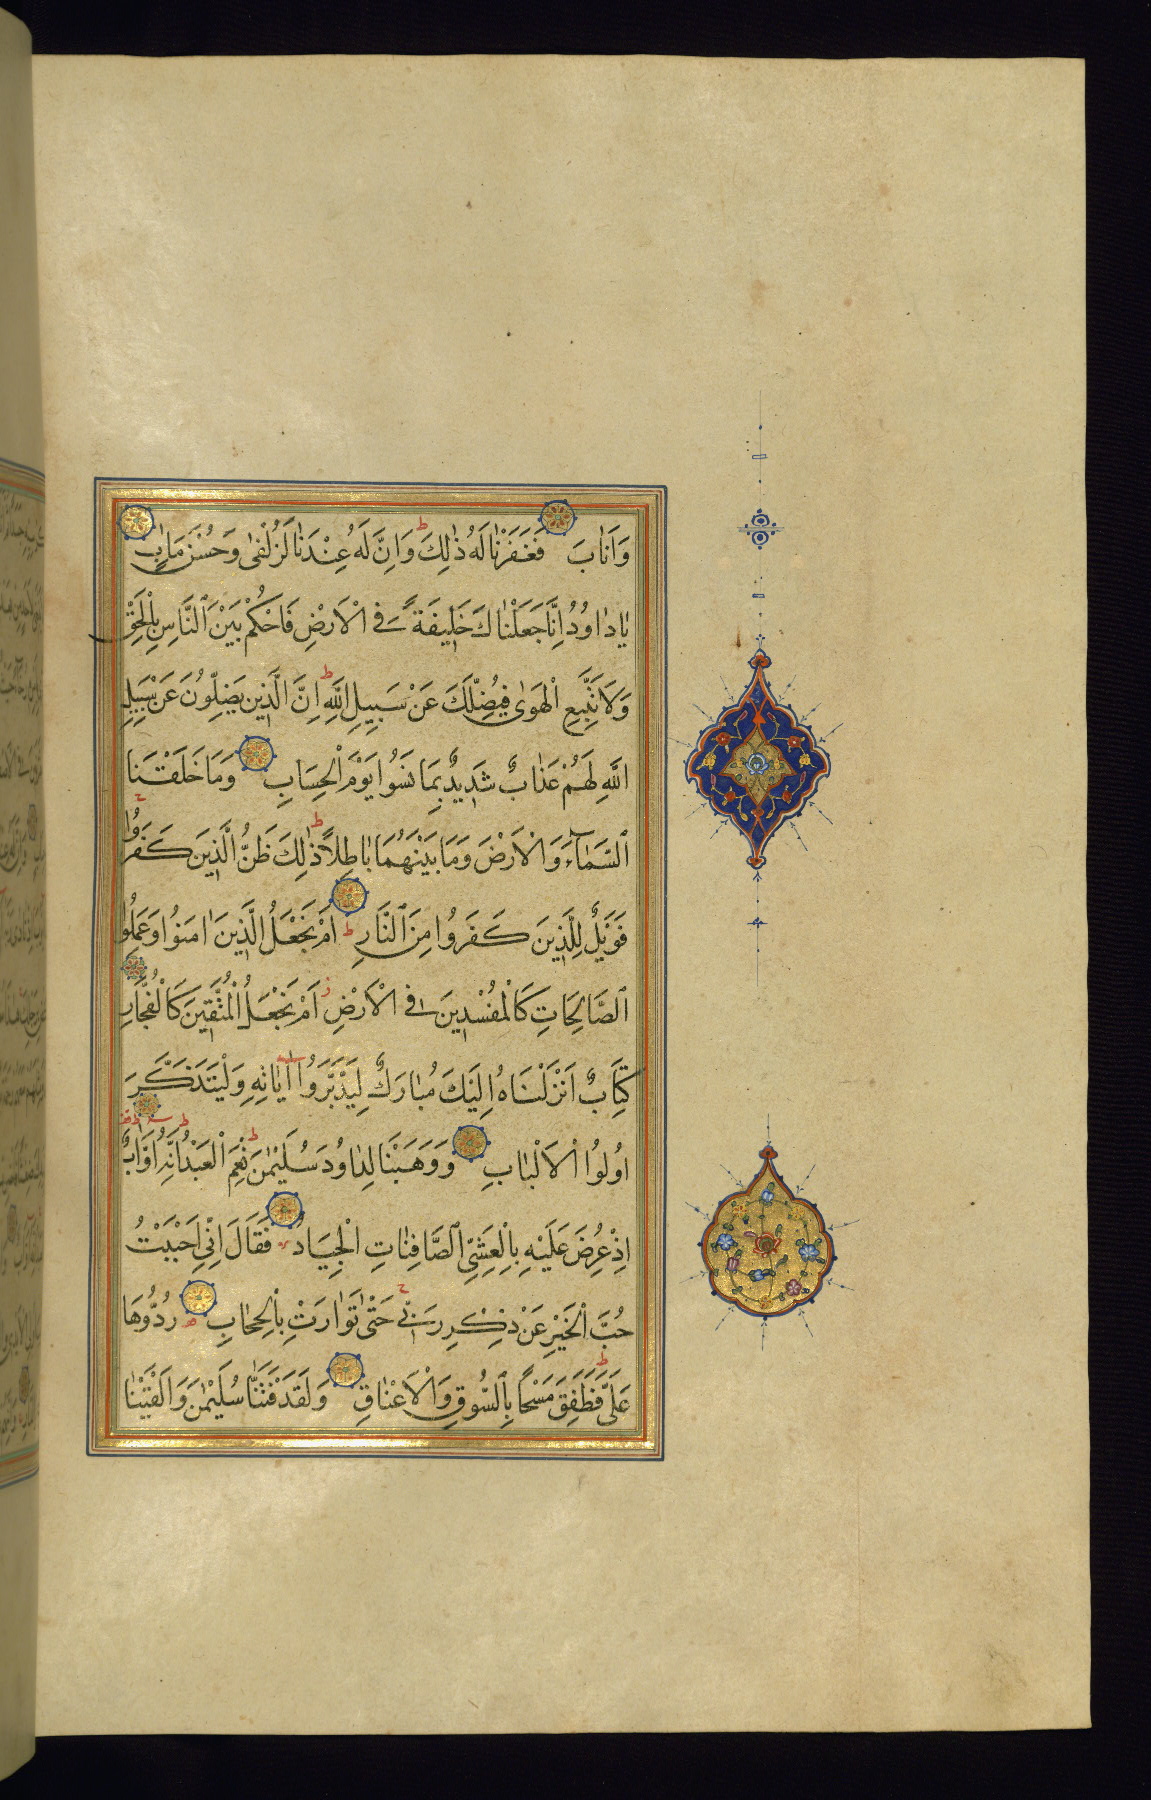 وَاَنَابَ فَغَفَرْنَا لَهُ ذٰلِكَ ط وَاِنَّ لَهُ عِنْدَنَا لَزُلْفٰى وَحُسْنَ مَاٰبٍ
يَادَاوُدُ اِنَّا جَعَلْنَاكَ خَلِيفَةً فِى الْاَرْضِ فَاحْكُمْ بَيْنَ النَّاسِ بِالْحَقِّ
وَلَا تَتَّبِعِ الْهَوٰى فَيُضِلَّكَ عَنْ سَبِيلِ اللّٰهِ ط اِنَّ الَّذِينَ يَضِلُّونَ عَنْ سَبِيلِ
اللّٰهِ لَهُمْ عَذَابٌ شَدِيدٌ بِمَا نَسُوا يَوْمَ الْحِسَابِ وَمَا خَلَقْنَا
السَّمَآءَ وَالْاَرْضَ وَمَا بَيْنَهُمَا بَاطِلًا ط ذٰلِكَ ظَنُّ الَّذِينَ كَفَرُوا ج
فَوَيْلٌ لِلَّذِينَ كَفَرُوا مِنَ النَّارِ ط اَمْ نَجْعَلُ الَّذِينَ اٰمَنُوا وَعَمِلُوا
الصَّالِحَاتِ كَالْمُفْسِدِينَ فِى الْاَرْضِ ز اَمْ نَجْعَلُ الْمُتَّقِينَ كَالْفُجَّارِ
كِتَابٌ اَنْزَلْنَاهُ اِلَيْكَ مُبَارَكٌ لِيَدَّبَّرُوا اٰيَاتِهِ وَلْيَتَذَكَّرَ
اُولُوا الْاَلْبَابِ وَوَهَبْنَا لِدَاوُدَ سُلَيْمٰنَ ط نِعْمَ الْعَبْدُ ط اِنَّهُ اَوَّابٌ
اِذْ عُرِضَ عَلَيْهِ بِالْعَشِىِّ الصَّافِنَاتُ الْجِيَادُ فَقَالَ اِنِّى اَحْبَبْتُ
حُبَّ الْخَيْرِ عَنْ ذِكْرِ رَبِّى ج حَتّٰى تَوَارَتْ بِالْحِجَابِ رُدُّوهَا
عَلَىَّ ط فَطَفِقَ مَسْحًا بِالسُّوقِ وَالْاَعْنَاقِ وَلَقَدْ فَتَنَّا سُلَيْمٰنَ وَاَلْقَيْنَا